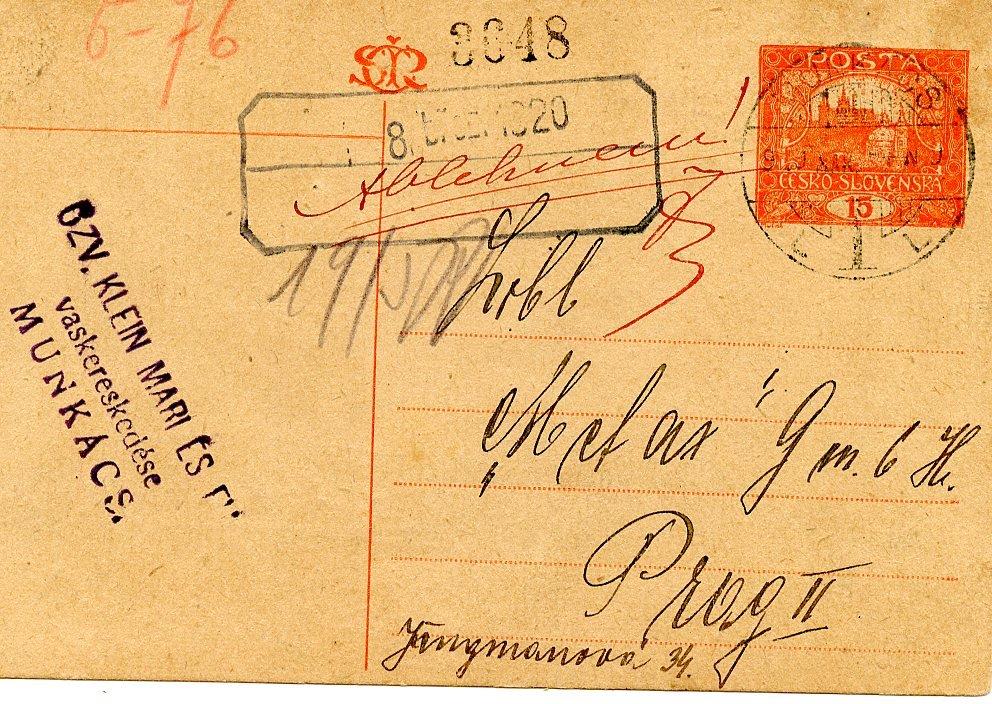 5-76
3648
8. břez. 1920
POŠTA
ČESKO-SLOVENSKÁ
15
ÖZV. KLEIN MARI ÉS
vaskereskedése
MUNKÁCS.
Löbl
„Metax" G m. b H.
Prag II
Jungmanova 34.